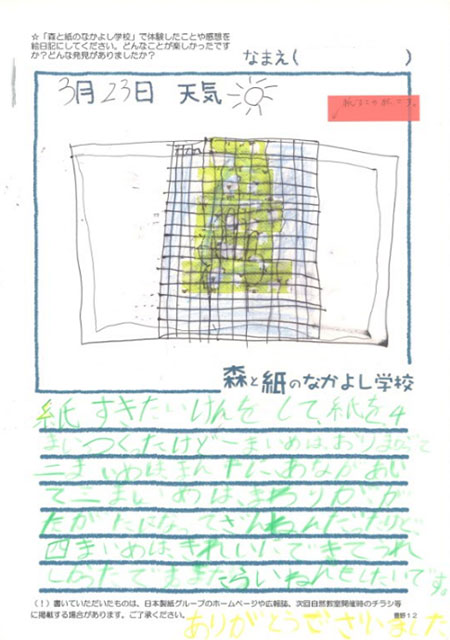 ☆「森と紙のなかよし学校」で体験したことや感想を
絵日記にしてください。どんなことが楽しかったです
か？どんな発見がありましたか？
なまえ(　　　　　)
3月23日 天気
森と紙のなかよし学校
紙すきたいけんをして、紙を4
まいつくったけど一まいめは、おりまがって
二まいめはまん中に、あながあい
て三まいめは、まわりが、が
たがたになってざんねんだったけど、
四まいめは、きれいにできてうれ
しかったでもまたらいねんきたいです。
(！)書いていただいたものは、日本製紙グループのホームページや広報誌、次回自然教室開催時のチラシ等
に掲載する場合があります。ご了承ください。
ありがとうございました